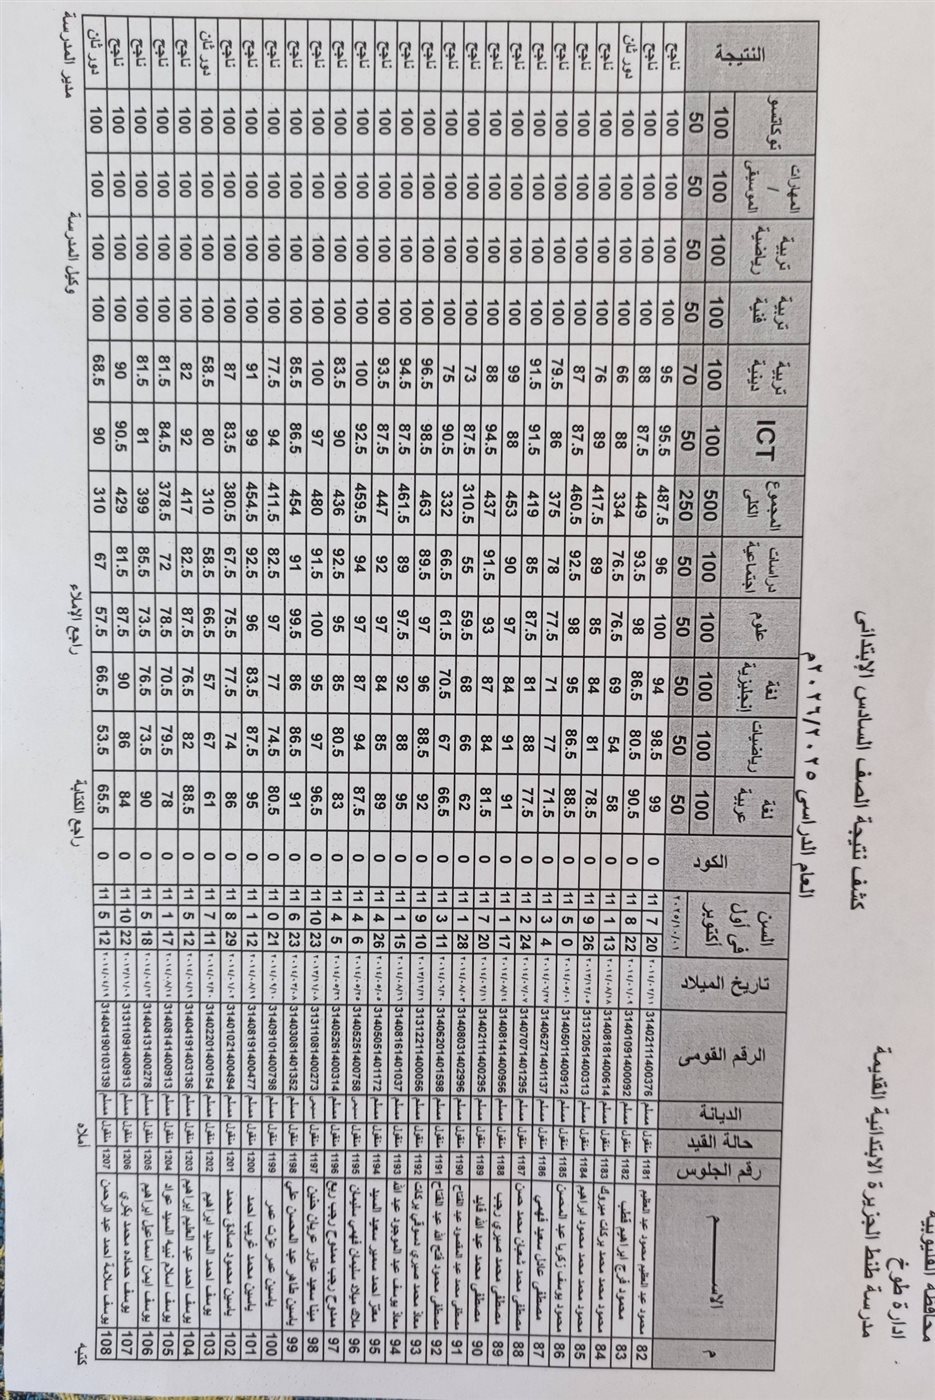 محافظة القليوبية
ادارة طوخ
مدرسة طنط الجزيرة الابتدائية القديمة
كشف نتيجة الصف السادس الإبتدائى
العام الدراسى ٢٠٢٦/٢٠٢٥م
م الاســـــم رقم الجلوس حالة القيد الديانة الرقم القومى تاريخ الميلاد السن فى أول أكتوبر الكود لغة عربية رياضيات لغة إنجليزية علوم دراسات اجتماعية المجموع الكلى ICT تربية دينية تربية فنية تربية رياضية المهارات / الموسيقى توكاتسو النتيجة
100 100 100 100 100 500 100 100 100 100 100 100
٢٠٢٥/١٠/٠١ 50 50 50 50 50 250 50 70 50 50 50 50
82 محمود عبد العظيم محمود عبد العظيم 1181 منقول مسلم 31402111400376 20 7 11 0 99 98.5 94 100 96 487.5 95.5 95 100 100 100 100 ناجح
83 محمود فرج ابراهيم قطب 1182 منقول مسلم 31401091400092 22 8 11 0 90.5 80.5 86.5 98 93.5 449 87.5 88 100 100 100 100 ناجح
84 محمود محمد بركات مبروك 1183 منقول مسلم 31408181400614 13 1 11 0 58 54 69 76.5 76.5 334 88 66 100 100 100 100 دور ثان
85 محمود محمد محمود ابراهيم 1184 منقول مسلم 31312051400313 26 9 11 0 78.5 81 84 85 89 417.5 89 76 100 100 100 100 ناجح
86 محمود يوسف زكريا عبد المحسن 1185 منقول مسلم 31405011400912 0 5 11 0 88.5 86.5 95 98 92.5 460.5 87.5 87 100 100 100 100 ناجح
87 مصطفى عادل سعيد فهمي 1186 منقول مسلم 31406271401137 4 3 11 0 71.5 77 71 77.5 78 375 86 79.5 100 100 100 100 ناجح
88 مصطفى محمد شعبان محمد حسن 1187 منقول مسلم 31407071401295 24 2 11 0 77.5 88 81 87.5 85 419 91.5 91.5 100 100 100 100 ناجح
89 مصطفى محمد صبري رجب 1188 منقول مسلم 31408141400956 17 1 11 0 91 91 84 97 90 453 88 99 100 100 100 100 ناجح
90 مصطفى محمد عبد الله قايد 1189 منقول مسلم 31402111400295 20 7 11 0 81.5 84 87 93 91.5 437 94.5 88 100 100 100 100 ناجح
91 مصطفى محمد عبد المقصود عبد الفتاح 1190 منقول مسلم 31408031402996 28 1 11 0 62 66 68 59.5 55 310.5 87.5 73 100 100 100 100 ناجح
92 مصطفى محمود فتح الله عبد الفتاح 1191 منقول مسلم 31406201401598 11 3 11 0 66.5 67 70.5 61.5 66.5 332 90.5 75 100 100 100 100 ناجح
93 معاذ محمد صبري دسوقي بركات 1192 منقول مسلم 31312211400056 10 9 11 0 92 88.5 96 97 89.5 463 98.5 96.5 100 100 100 100 ناجح
94 معاذ يوسف عبد الموجود عبد الله 1193 منقول مسلم 31408161401037 15 1 11 0 95 88 92 97.5 89 461.5 87.5 94.5 100 100 100 100 ناجح
95 معتز احمد سمير سعيد السيد 1194 منقول مسلم 31405051401172 26 4 11 0 89 85 84 97 92 447 87.5 93.5 100 100 100 100 ناجح
96 ملاك ميلاد سليمان فهمي سليمان 1195 منقول مسيحى 31405251400758 6 4 11 0 87.5 94 87 97 94 459.5 92.5 100 100 100 100 100 ناجح
97 ممدوح رجب ممدوح رجب ربيع 1196 منقول مسلم 31405261400314 5 4 11 0 83 80.5 85 95 92.5 436 90 83.5 100 100 100 100 ناجح
98 مينا سعيد عازر عريان حنين 1197 منقول مسيحى 31311081400273 23 10 11 0 96.5 97 95 100 91.5 480 97 100 100 100 100 100 ناجح
99 ياسين طاهر عبد المحسن علي 1198 منقول مسلم 31403081401352 23 6 11 0 91 86.5 86 99.5 91 454 86.5 85.5 100 100 100 100 ناجح
100 ياسين عمر عزت عمر 1199 منقول مسلم 31409101400798 21 0 11 0 80.5 74.5 77 97 82.5 411.5 94 77.5 100 100 100 100 ناجح
101 ياسين محمد غريب احمد 1200 منقول مسلم 31408191400477 12 1 11 0 95 87.5 83.5 96 92.5 454.5 99 91 100 100 100 100 ناجح
102 ياسين محمود صادق محمد 1201 منقول مسلم 31401021400494 29 8 11 0 86 74 77.5 75.5 67.5 380.5 83.5 87 100 100 100 100 ناجح
103 يوسف احمد السيد ابراهيم 1202 منقول مسلم 31402201400154 11 7 11 0 61 67 57 66.5 58.5 310 80 58.5 100 100 100 100 دور ثان
104 يوسف احمد عبد العظيم ابراهيم 1203 منقول مسلم 31404191403136 12 5 11 0 88.5 82 76.5 87.5 82.5 417 92 82 100 100 100 100 ناجح
105 يوسف اسلام نبيه السيد عواد 1204 منقول مسلم 31408141400913 17 1 11 0 78 79.5 70.5 78.5 72 378.5 84.5 81.5 100 100 100 100 ناجح
106 يوسف ايمن اسماعيل ابراهيم 1205 منقول مسلم 31404131400278 18 5 11 0 90 73.5 76.5 73.5 85.5 399 81 81.5 100 100 100 100 ناجح
107 يوسف حماده محمد بكري 1206 منقول مسلم 31311091400913 22 10 11 0 84 86 90 87.5 81.5 429 90.5 90 100 100 100 100 ناجح
108 يوسف سلامة احمد عبد الرحمن 1207 منقول مسلم 31404190103139 12 5 11 0 65.5 53.5 66.5 57.5 67 310 90 68.5 100 100 100 100 دور ثان
كتبه أملاه راجع الكتابة راجع الإملاء وكيل المدرسة مدير المدرسة